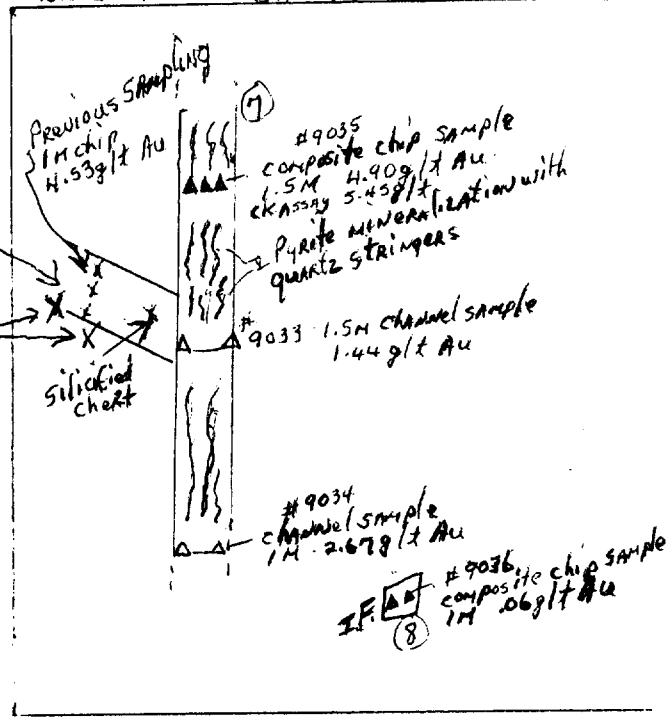 Previous Sampling
1M chip
4.53g/t Au
7
#9035
composite chip sample
1.5M 4.90g/t Au
CK ASSAY 5.45g/t
Pyrite mineralization with
quartz stringers
#
9033 1.5M channel sample
1.44 g/t Au
silicified
chert
#9034
channel sample
1M 2.67g/t Au
#9036
composite chip sample
1M .06g/t Au
I.F.
8